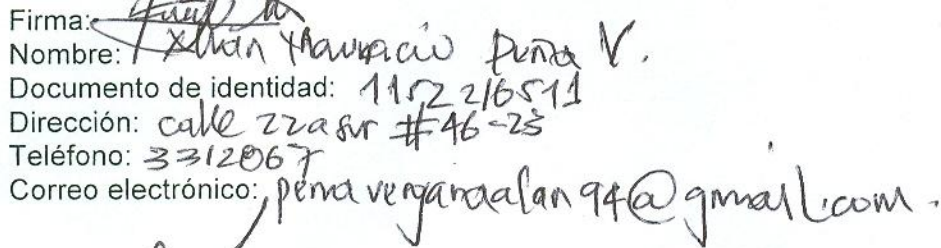 Firma:
Nombre: Alan Mauricio Peña V.
Documento de identidad: 1152216511
Dirección: calle 22a sur #46-23
Teléfono: 3312067
Correo electrónico: penaverganaalan94@gmail.com.